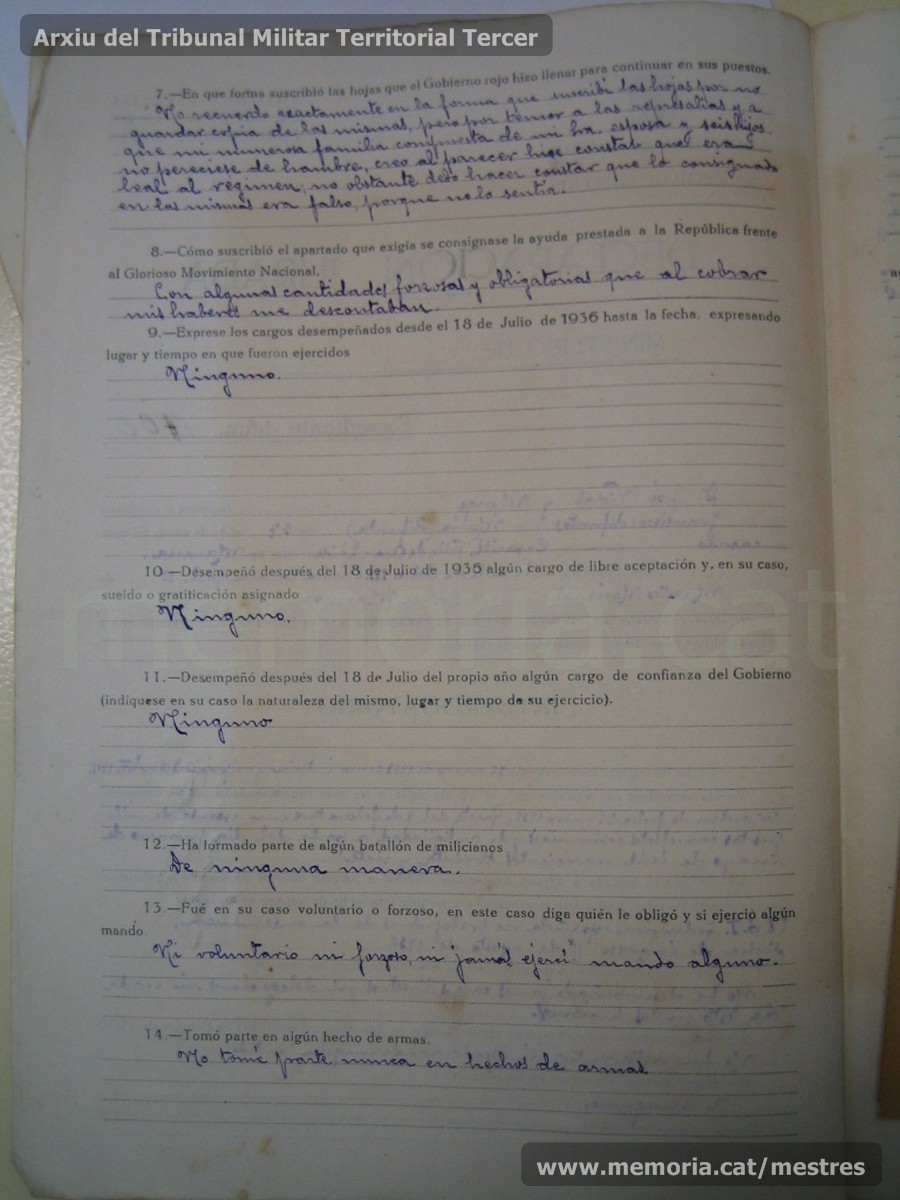 Arxiu del Tribunal Militar Territorial Tercer
7.—En que forma suscribió las hojas que el Gobierno rojo hizo llenar para continuar en sus puestos.
No recuerdo exactamente en la forma que suscribí las hojas por no
guardar copia de las mismas, pero por temor a las represalias y a
que mi numerosa familia compuesta de mi Sra. esposa y seis hijos
no pereciese de hambre, creo al parecer hice constar que era
leal al régimen; no obstante debo hacer constar que lo consignado
en las mismas era falso, porque no lo sentía.
8.—Cómo suscribió el apartado que exigía se consignase la ayuda prestada a la República frente
al Glorioso Movimiento Nacional.
Con algunas cantidades forzosas y obligatorias que al cobrar
mis haberes me descontaban.
9.—Exprese los cargos desempeñados desde el 18 de Julio de 1936 hasta la fecha, expresando
lugar y tiempo en que fueron ejercidos
Ninguno.
10.—Desempeñó después del 18 de Julio de 1936 algún cargo de libre aceptación y, en su caso,
sueldo o gratificación asignado
Ninguno.
memoria.cat
11.—Desempeñó después del 18 de Julio del propio año algún cargo de confianza del Gobierno
(indíquese en su caso la naturaleza del mismo, lugar y tiempo de su ejercicio).
Ninguno
12.—Ha formado parte de algún batallón de milicianos
De ninguna manera.
13.—Fué en su caso voluntario o forzoso, en este caso diga quién le obligó y si ejercio algún
mando
Ni voluntario ni forzoso, ni jamás ejercí mando alguno.
14.—Tomó parte en algún hecho de armas.
No tomé parte nunca en hechos de armas
www.memoria.cat/mestres